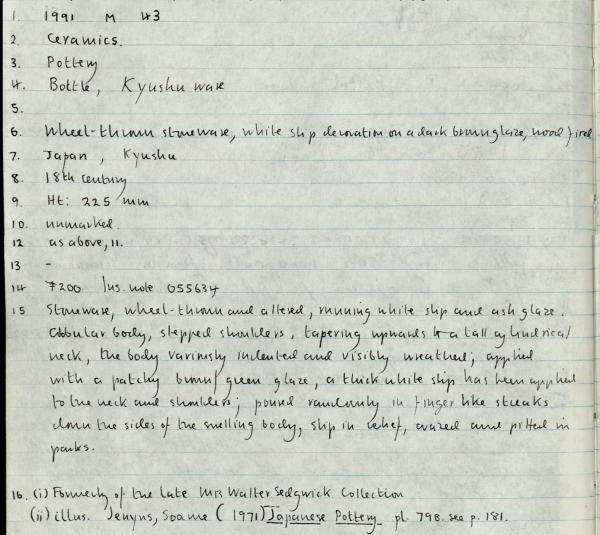 1. 1991 M 43
2 Ceramics.
3. Pottery
4. Bottle, Kyushu ware
5.
6. Wheel-thrown stoneware, white slip decoration on a dark brown glaze, wood fired
7. Japan, Kyushu
8. 18th century
9. Ht: 225 mm
10. unmarked.
12 as above, 11.
13 -
14 £200 Ins. note 055634
15 Stoneware, wheel-thrown and altered, running white slip and ash glaze.
Globular body, stepped shoulders, tapering upwards to a tall cylindrical
neck, the body variously indented and visibly wreathed; applied
with a patchy brown/green glaze, a thick white slip has been applied
to the neck and shoulders; poured randomly in finger like streaks
down the sides of the swelling body, slip in relief, crazed and pitted in
parts.
16. (i) Formerly of the late Mrs Walter Sedgwick Collection
(ii) illus. Jenyns, Soame (1971) Japanese Pottery pl. 79B. see p. 181.